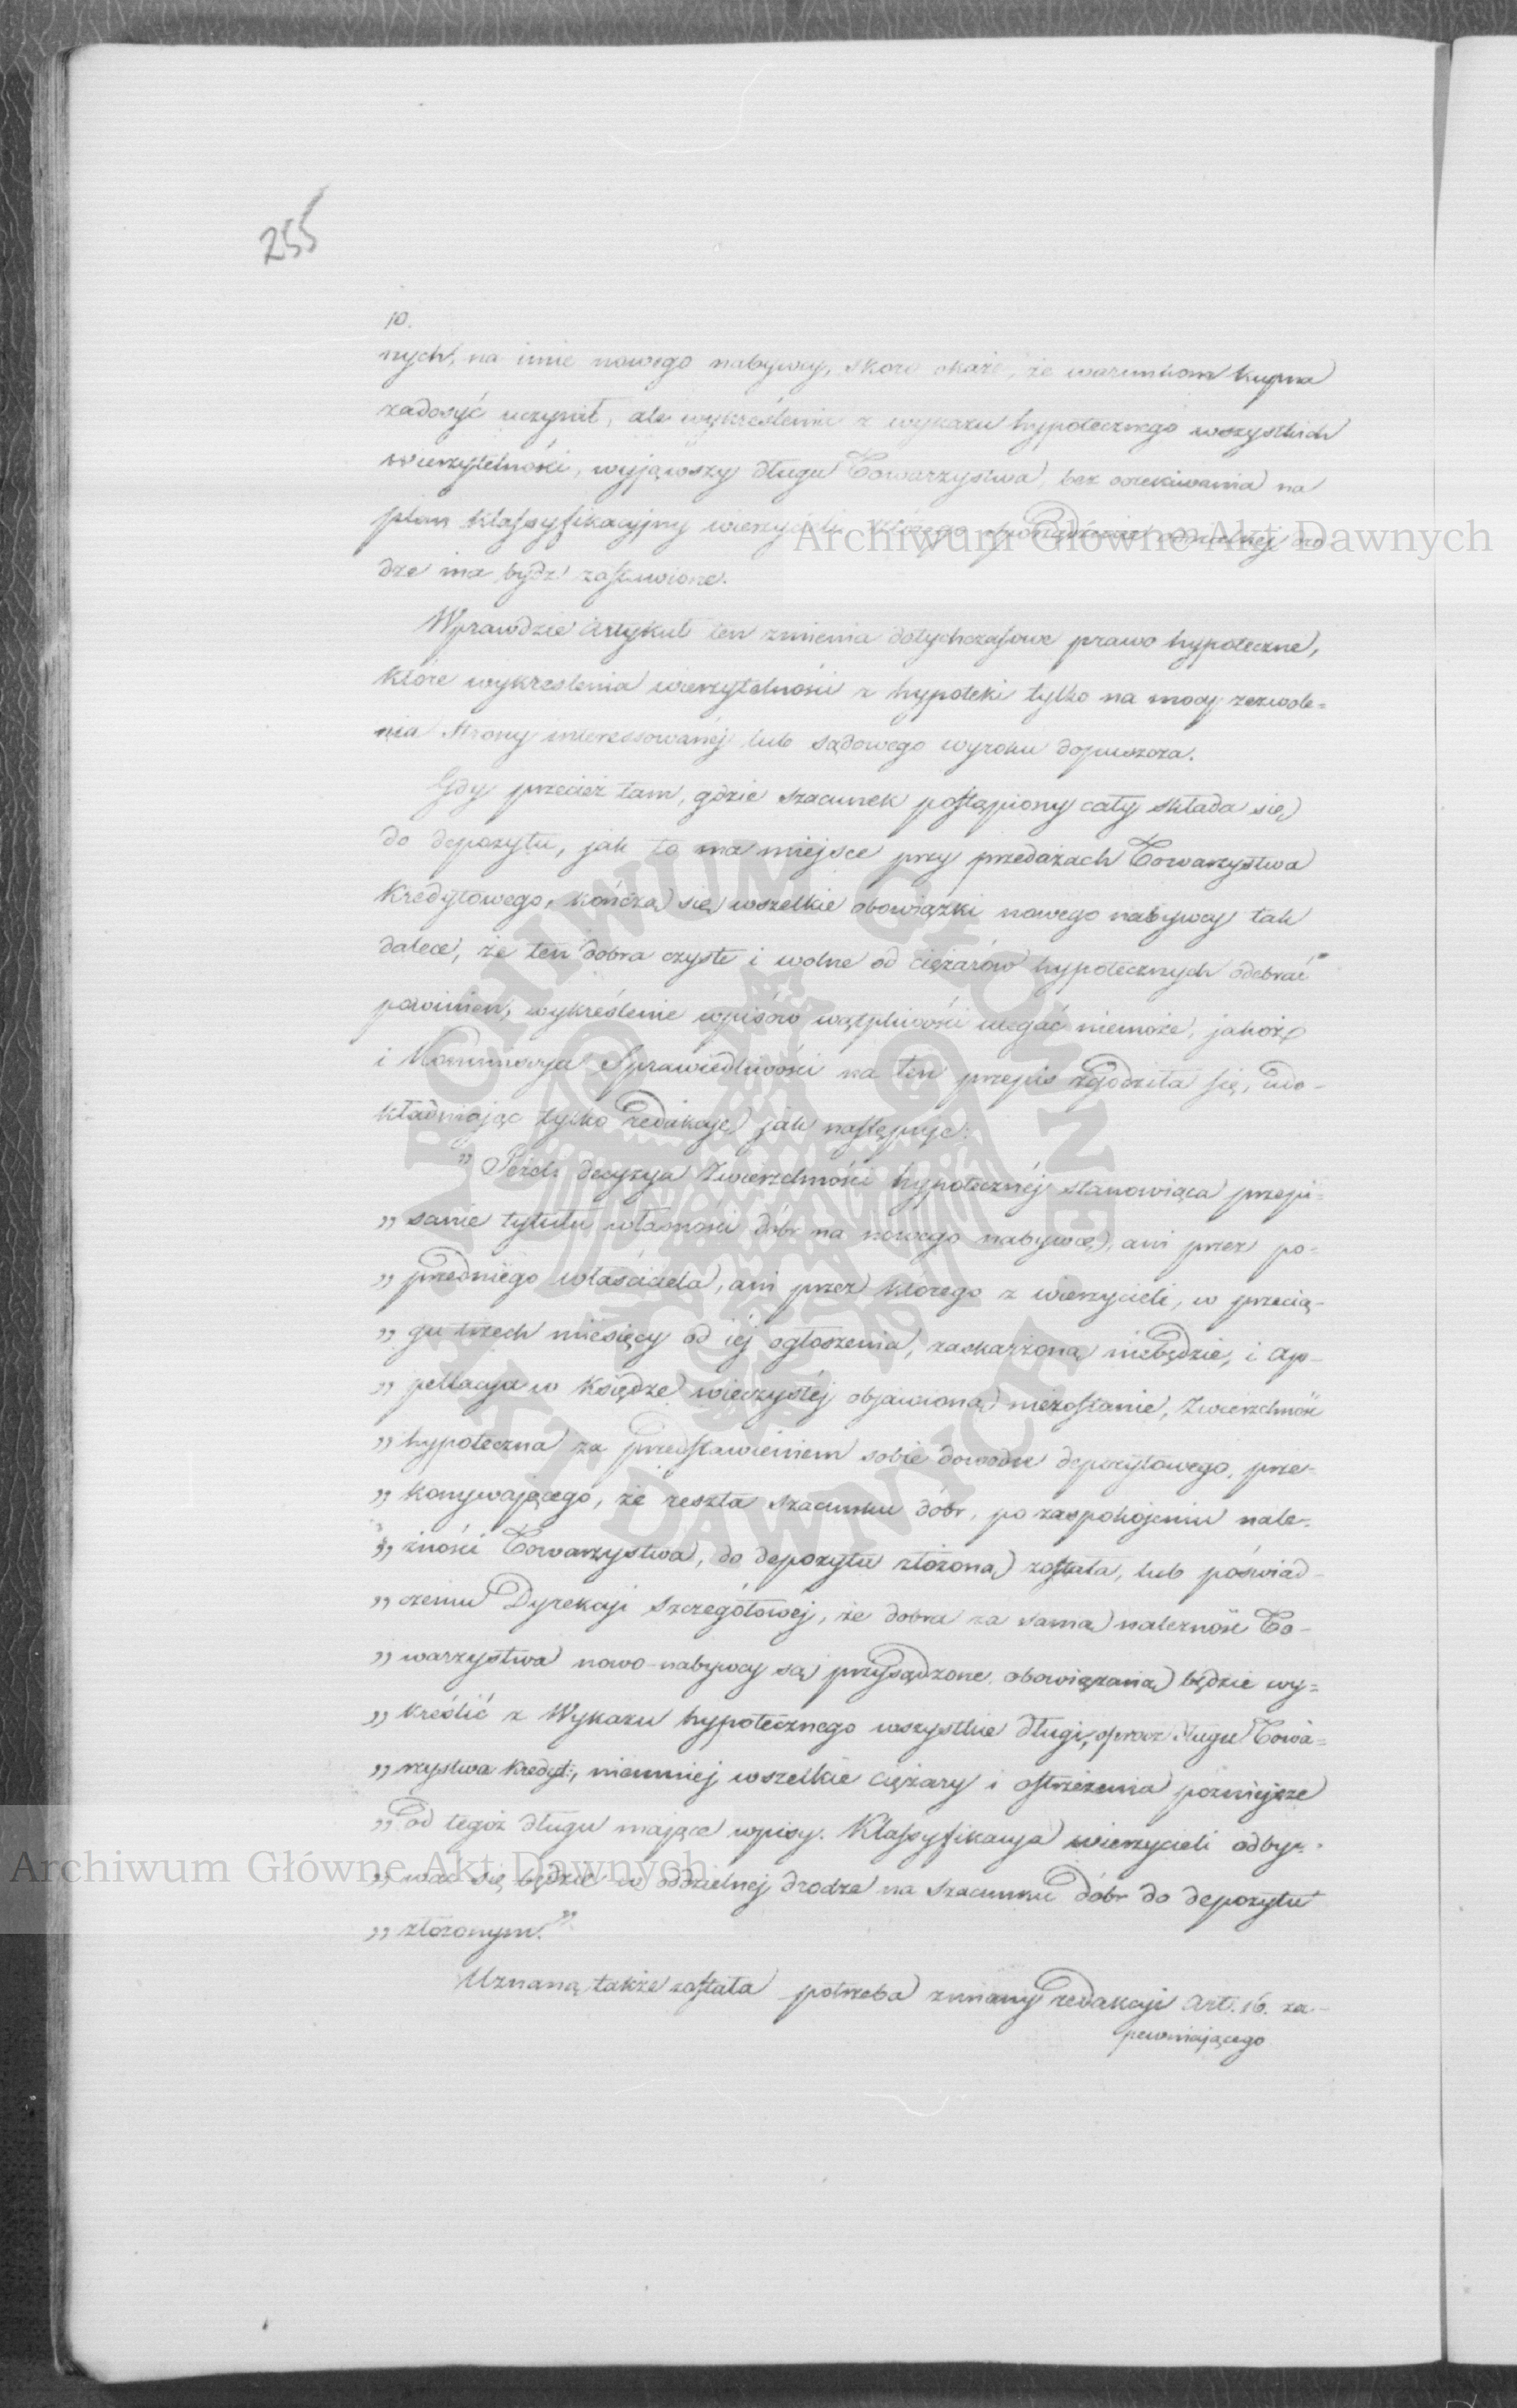 255
10.
nych, na imie nowego nabywcy, skoro okaże, że warunkom kupna
zadosyć uczynił, ale wykreślenie z wykazu hypotecznego wszystkich
wierzytelności, wyjąwszy długu Towarzystwa, bez oczekiwania na
plan klassyfikacyjny wierzycieli, którego sporządzenie oddzielnej dro
dze ma bydź zostawione.
Wprawdzie Artykuł ten zmienia dotychczasowe prawo hypoteczne,
które wykreslenia wierzytelności z hypoteki tylko na mocy zezwole=
nia Strony interessowanéj lub sądowego wyroku dopuszcza.
Gdy przecież tam, gdzie szacunek postąpiony cały składa się
do depozytu, jak to ma miejsce przy przedażach Towarzystwa
Kredytowego, kończą się wszelkie obowiązki nowego nabywcy tak
dalece, że ten dobra czyste i wolne od ciężarów hypotecznych odebrać
powinien, wykreślenie wpisów wątpliwości ulegać niemoże, jakoż
i Kommissya Sprawiedliwości na ten przepis zgodziła się, udo-
kładniając tylko redakcję jak następuje:
„ Jeżeli decyzya Zwierzchności hypotecznéj stanowiąca przepi=
„ sanie tytułu własności dóbr na nowego nabywcę, ani przez po-
„ przedniego właściciela, ani przez którego z wierzycieli, w przecią-
„ gu trzech miesięcy od jéj ogłoszenia, zaskarżoną niebędzie, i ap-
„ pellacya w Księdze wieczystéj objawioną niezostanie, Zwierzchność
„ hypoteczna za przedstawieniem sobie dowodu depozytowego, prze-
„ konywającego, że reszta szacunku dóbr, po zaspokojeniu nale-
„ żności Towarzystwa, do depozytu złożoną została, lub poświad-
„ czeniu Dyrekcji Szczegółowéj, że dobra za samą należność To-
„ warzystwa nowo-nabywcy są przysądzone, obowiązaną będzie wy=
„ kreślić z Wykazu hypotecznego wszystkie długi, oprócz długu Towa=
„ rzystwa Kredyt:, niemniej wszelkie ciężary i ostrzeżenia pozniejsze
„ od tegoż długu mające wpisy. Klassyfikacya wierzycieli odby-
„ wać się będzie w oddzielnej drodze na szacunku dóbr do depozytu
„ złożonym."
Uznaną także została potrzeba zmiany redakcji Art. 16. za-
pewniającego
Archiwum Główne Akt Dawnych
Archiwum Główne Akt Dawnych
ARCHIWUM GŁÓWNE AKT DAWNYCH